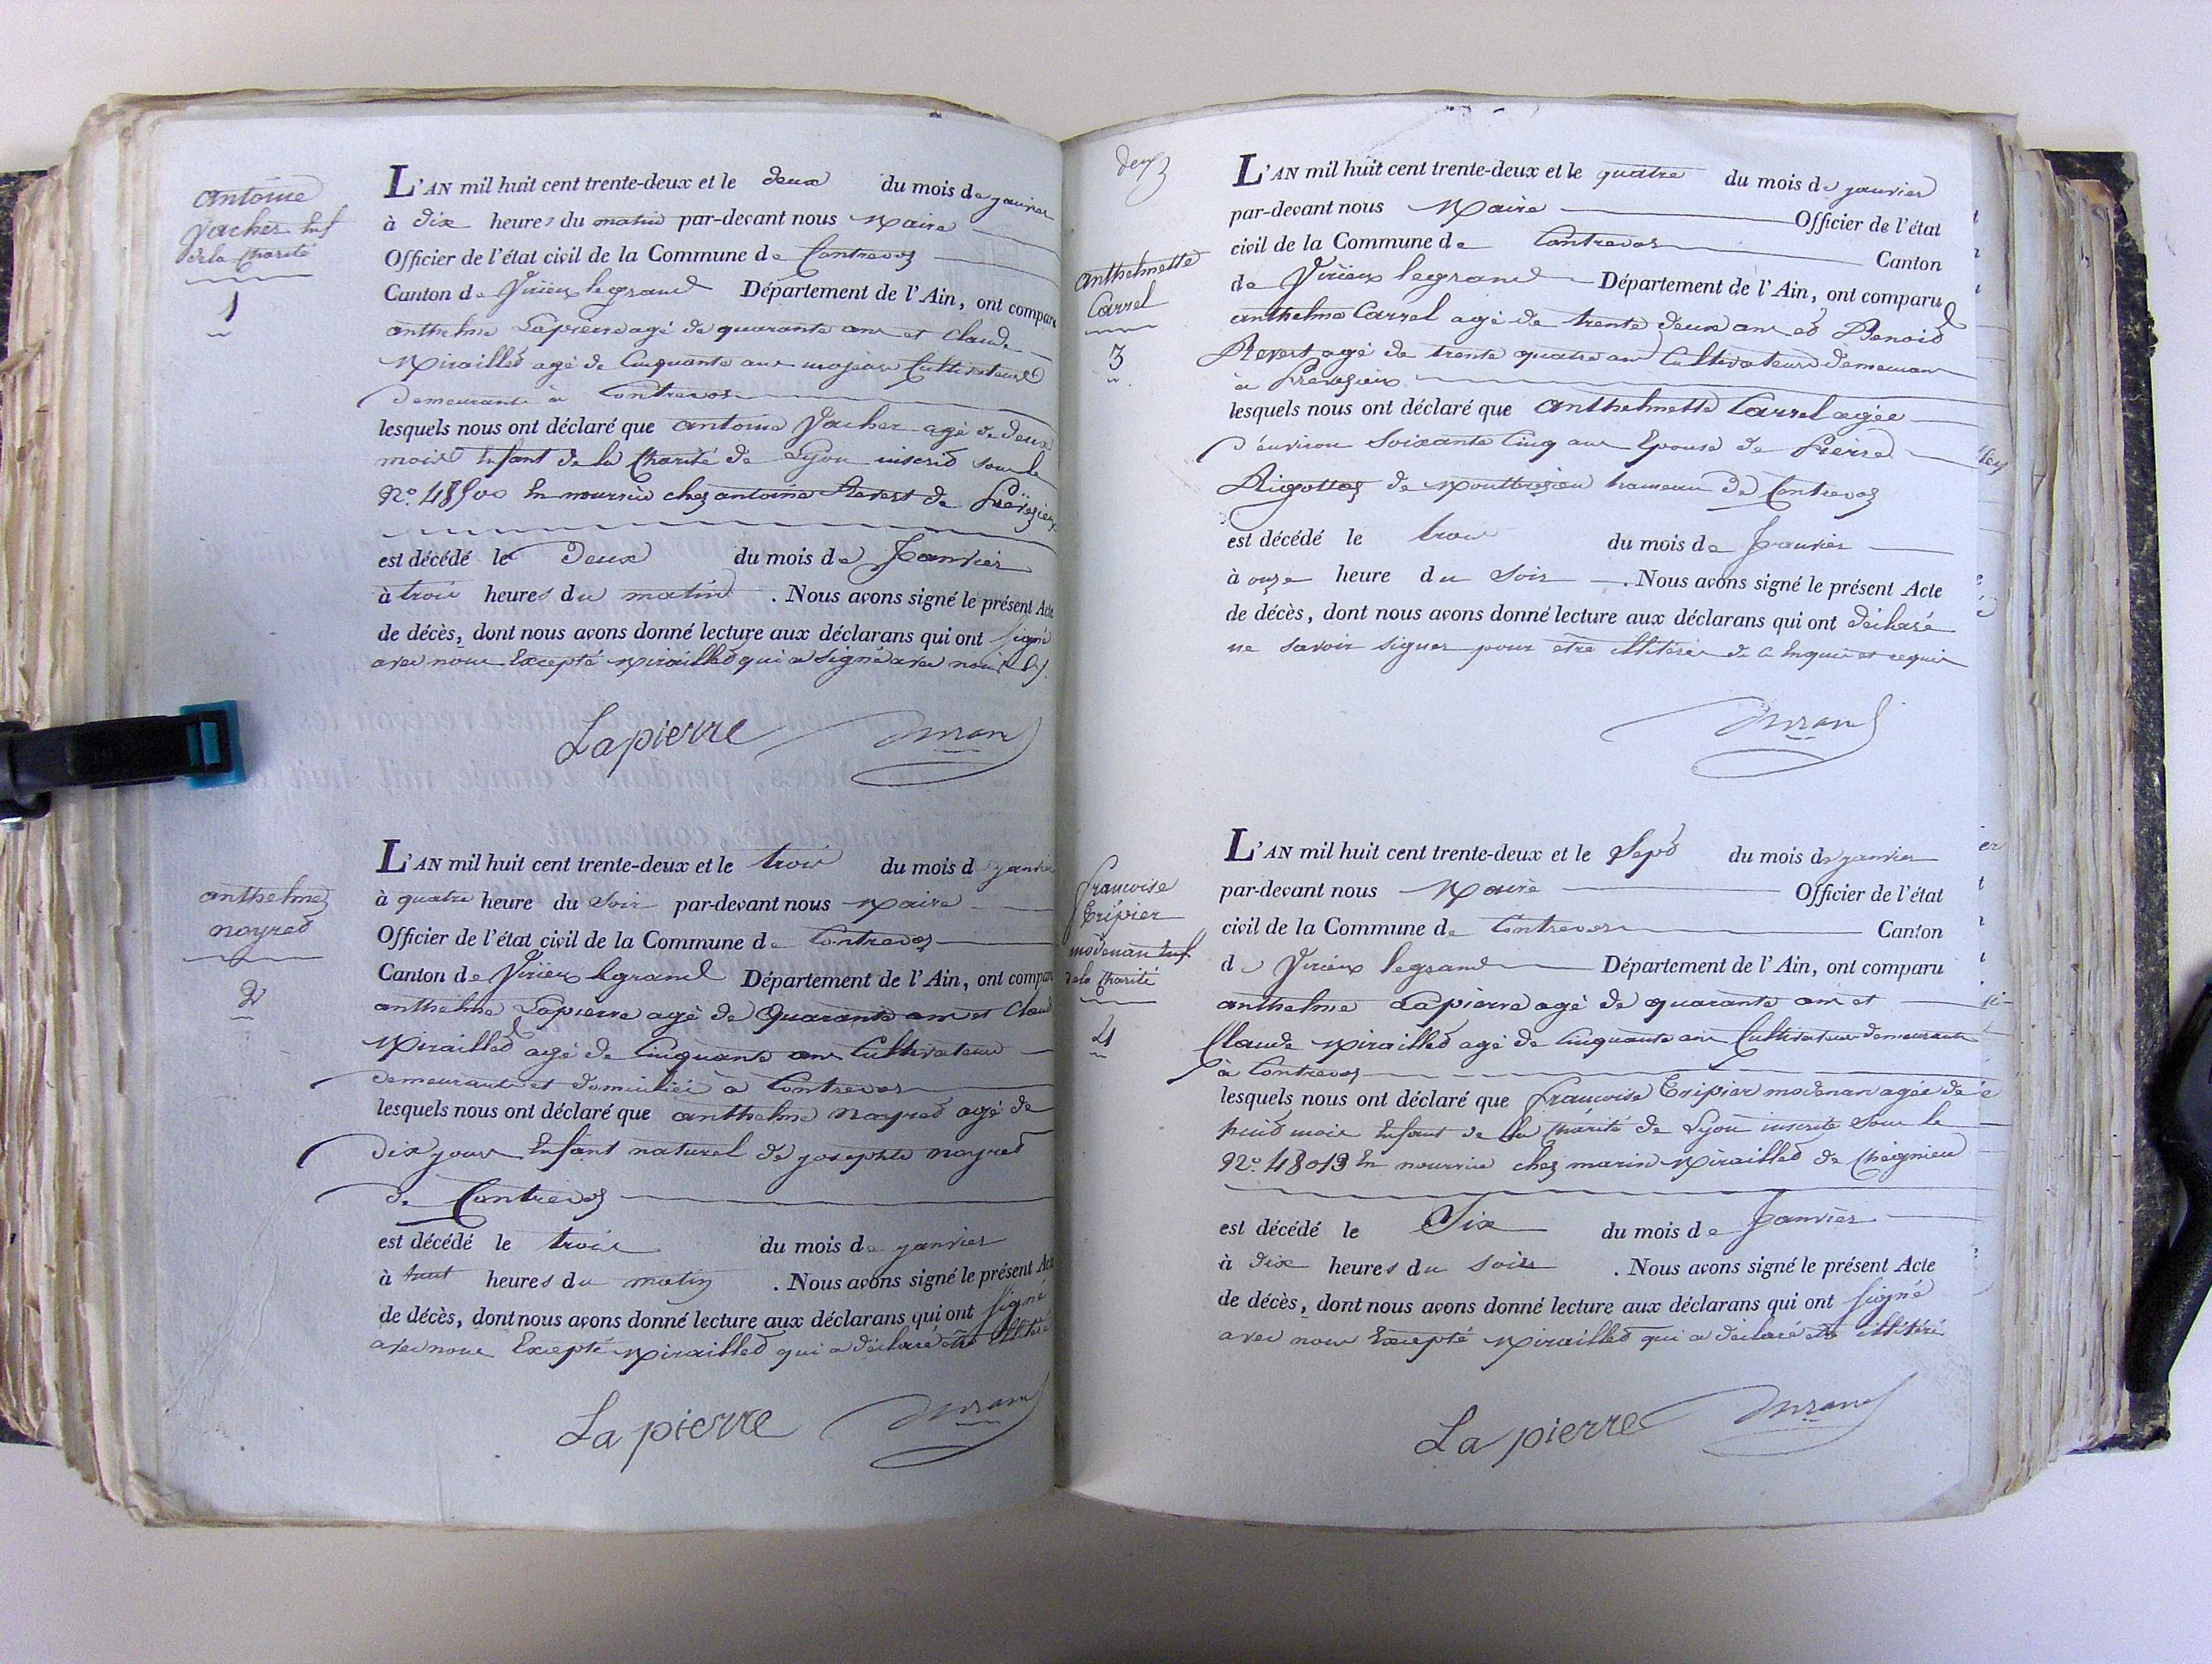 antoine
Vacher enf
de la Charité
1
L'AN mil huit cent trente-deux et le deux du mois de janvier
à dix heures du matin par-devant nous Maire
Officier de l'état civil de la Commune de Contrevoz
Canton de Virieux legrand Département de l'Ain, ont comparu
anthelme Lapierre agé de quarante ans et Claude
Miraillet agé de Cinquante ans majeurs Cultivateurs
demeurants à Contrevoz
lesquels nous ont déclaré que antoine Vacher agé de deux
mois Enfant de la Charité de Lyon inscrit sous le
N°. En nourrice chez antoine Revest de
est décédé le deux du mois de Janvier
à trois heures du matin . Nous avons signé le présent Acte
de décès, dont nous avons donné lecture aux déclarans qui ont signé
avec nous Excepté Miraillet qui a signé avec nous
Lapierre Durand
anthelme
noyret
2
L'AN mil huit cent trente-deux et le trois du mois d janvier
à quatre heure du Soir par-devant nous Maire
Officier de l'état civil de la Commune de Contrevoz
Canton de Virieux legrand Département de l'Ain, ont comparu
anthelme Lapierre agé de Quarante ans et Claude
Miraillet agé de Cinquante ans Cultivateurs
demeurants et domiciliés à Contrevoz
lesquels nous ont déclaré que anthelme noyret agé de
dix jours Enfant naturel de josephte noyret
de Contrevoz
est décédé le trois du mois de janvier
à huit heures du matin . Nous avons signé le présent Acte
de décès, dont nous avons donné lecture aux déclarans qui ont signé
avec nous Excepté Miraillet qui a déclaré être illitéré
Lapierre Durand
deux
anthelmette
Carrel
3
L'AN mil huit cent trente-deux et le quatre du mois de janvier
par-devant nous Maire Officier de l'état
civil de la Commune de Contrevoz Canton
de Virieux legrand Département de l'Ain, ont comparu
anthelme Carrel agé de trente deux ans et Benoit
Revest agé de trente quatre ans Cultivateurs demeurans
à
lesquels nous ont déclaré que anthelmette Carrel agée
d'environ Soixante Cinq ans Epouse de Pierre
Rigottaz de hameau de Contrevoz
est décédé le trois du mois de Janvier
à onze heure du Soir . Nous avons signé le présent Acte
de décès, dont nous avons donné lecture aux déclarans qui ont déclaré
ne savoir signer pour être illitérés de ce Enquis et requis
Durand
françoise
Tripier
modenan enf
de la Charité
4
L'AN mil huit cent trente-deux et le Sept du mois de janvier
par-devant nous Maire Officier de l'état
civil de la Commune de Contrevoz Canton
de Virieux legrand Département de l'Ain, ont comparu
anthelme Lapierre agé de quarante ans et
Claude Miraillet agé de Cinquante ans Cultivateurs demeurants
à Contrevoz
lesquels nous ont déclaré que françoise Tripier modenan agée de
huit mois Enfant de la Charité de Lyon inscrite Sous le
N°. 48013 En nourrice chez marin Miraillet de Cheignieu
est décédé le Six du mois de Janvier
à dix heures du Soir . Nous avons signé le présent Acte
de décès, dont nous avons donné lecture aux déclarans qui ont signé
avec nous Excepté Miraillet qui a déclaré être illitéré
Lapierre Durand